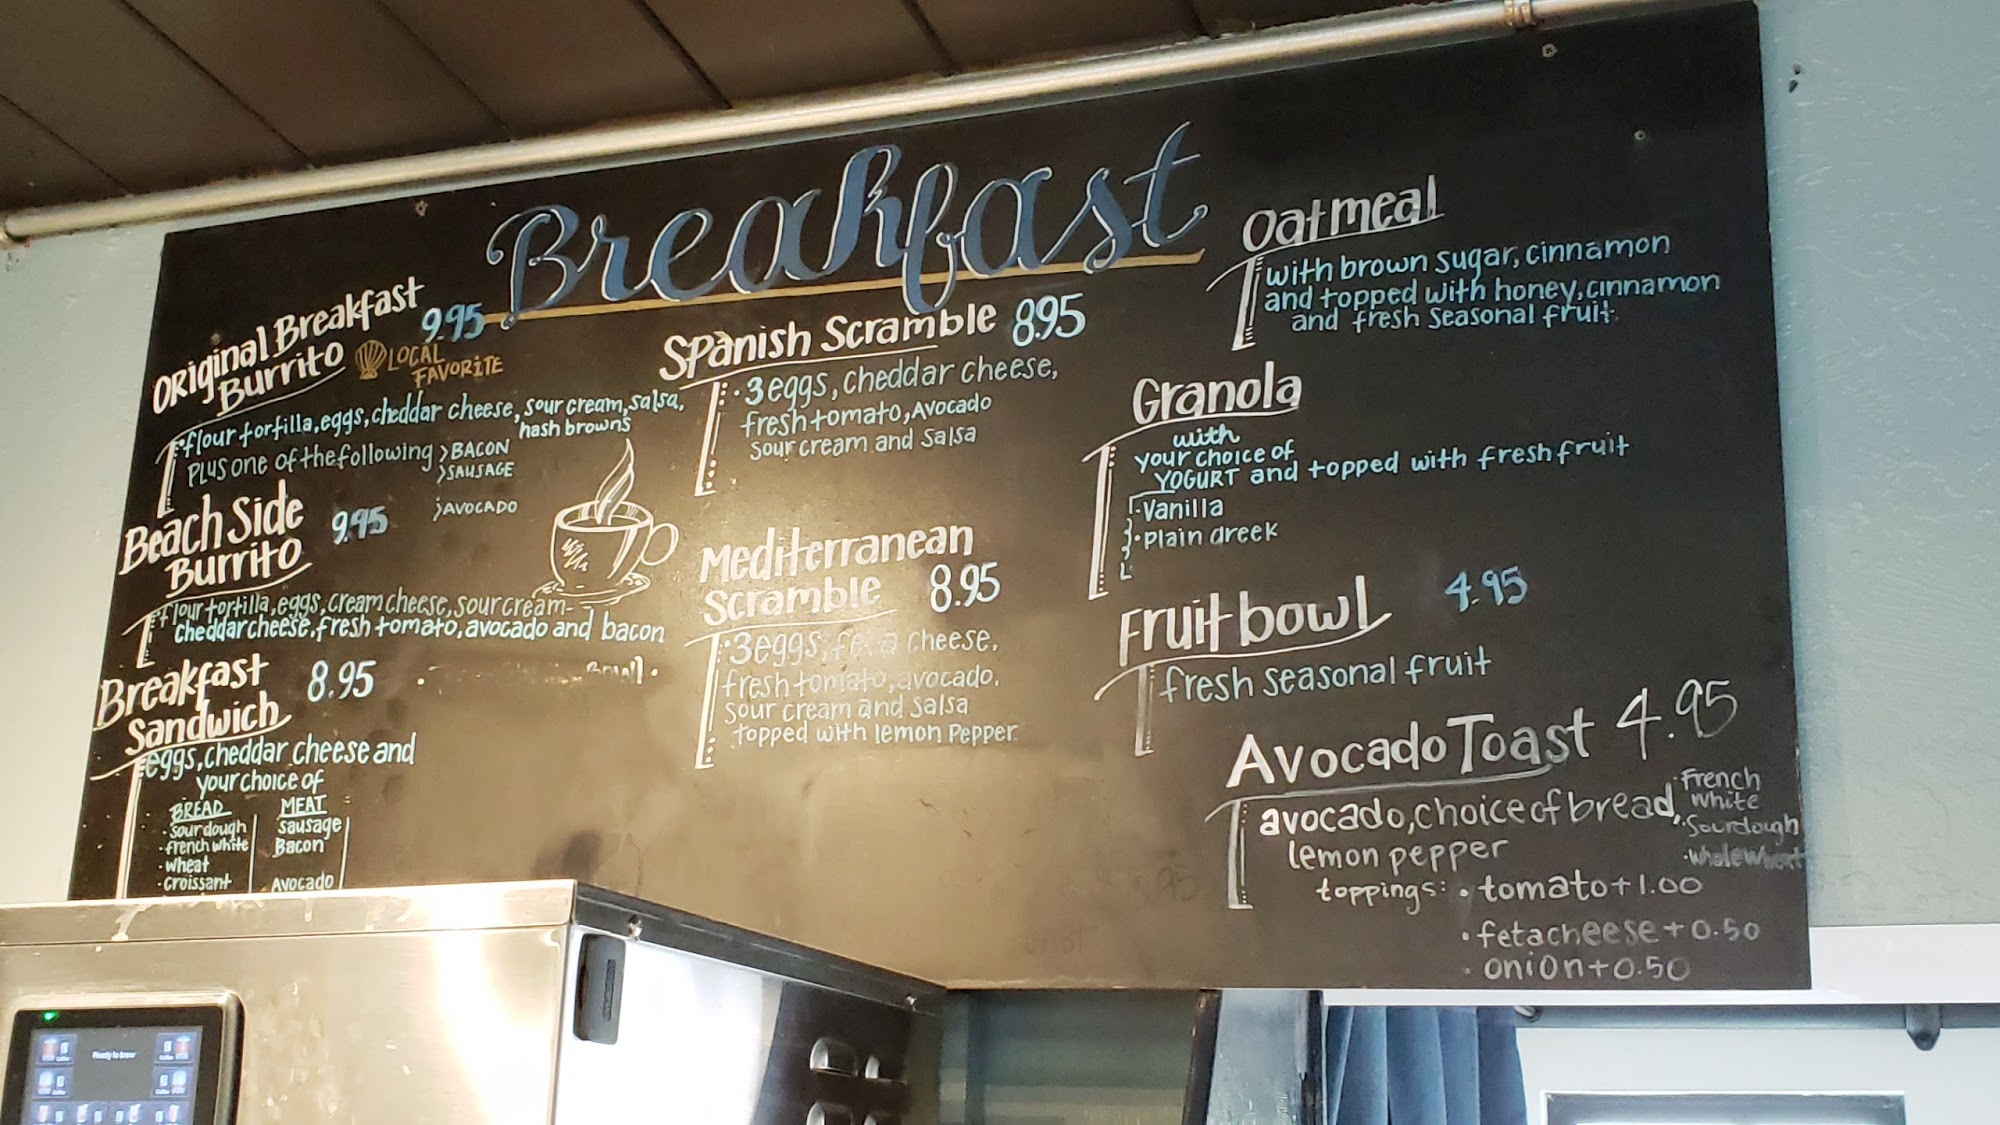 Breakfast
Original Breakfast
Burrito
9.95
LOCAL
FAVORITE
flour tortilla, eggs, cheddar cheese, sour cream, salsa,
hash browns
Plus one of the following >BACON
>SAUSAGE
>AVOCADO
Beach Side
Burrito
9.95
flour tortilla, eggs, cream cheese, sour cream
cheddar cheese, fresh tomato, avocado and bacon
Breakfast
Sandwich
8.95
Bowl.
eggs, cheddar cheese and
your choice of
BREAD
• sourdough
• french white
• wheat
• croissant
MEAT
Sausage
Bacon
Avocado
Spanish Scramble 8.95
• 3 eggs, cheddar cheese,
fresh tomato, Avocado
sour cream and salsa
Mediterranean
Scramble
8.95
• 3 eggs, feta cheese,
fresh tomato, avocado,
sour cream and salsa
topped with lemon pepper
Oatmeal
with brown sugar, cinnamon
and topped with honey, cinnamon
and fresh seasonal fruit.
Granola
with
your choice of
YOGURT and topped with fresh fruit
• Vanilla
• Plain Greek
Fruit bowl 4.95
fresh seasonal fruit
Avocado Toast 4.95
avocado, choice of bread,
• French
white
• Sourdough
• whole wheat
lemon pepper
toppings: • tomato +1.00
• feta cheese +0.50
• onion +0.50
Ready to brew